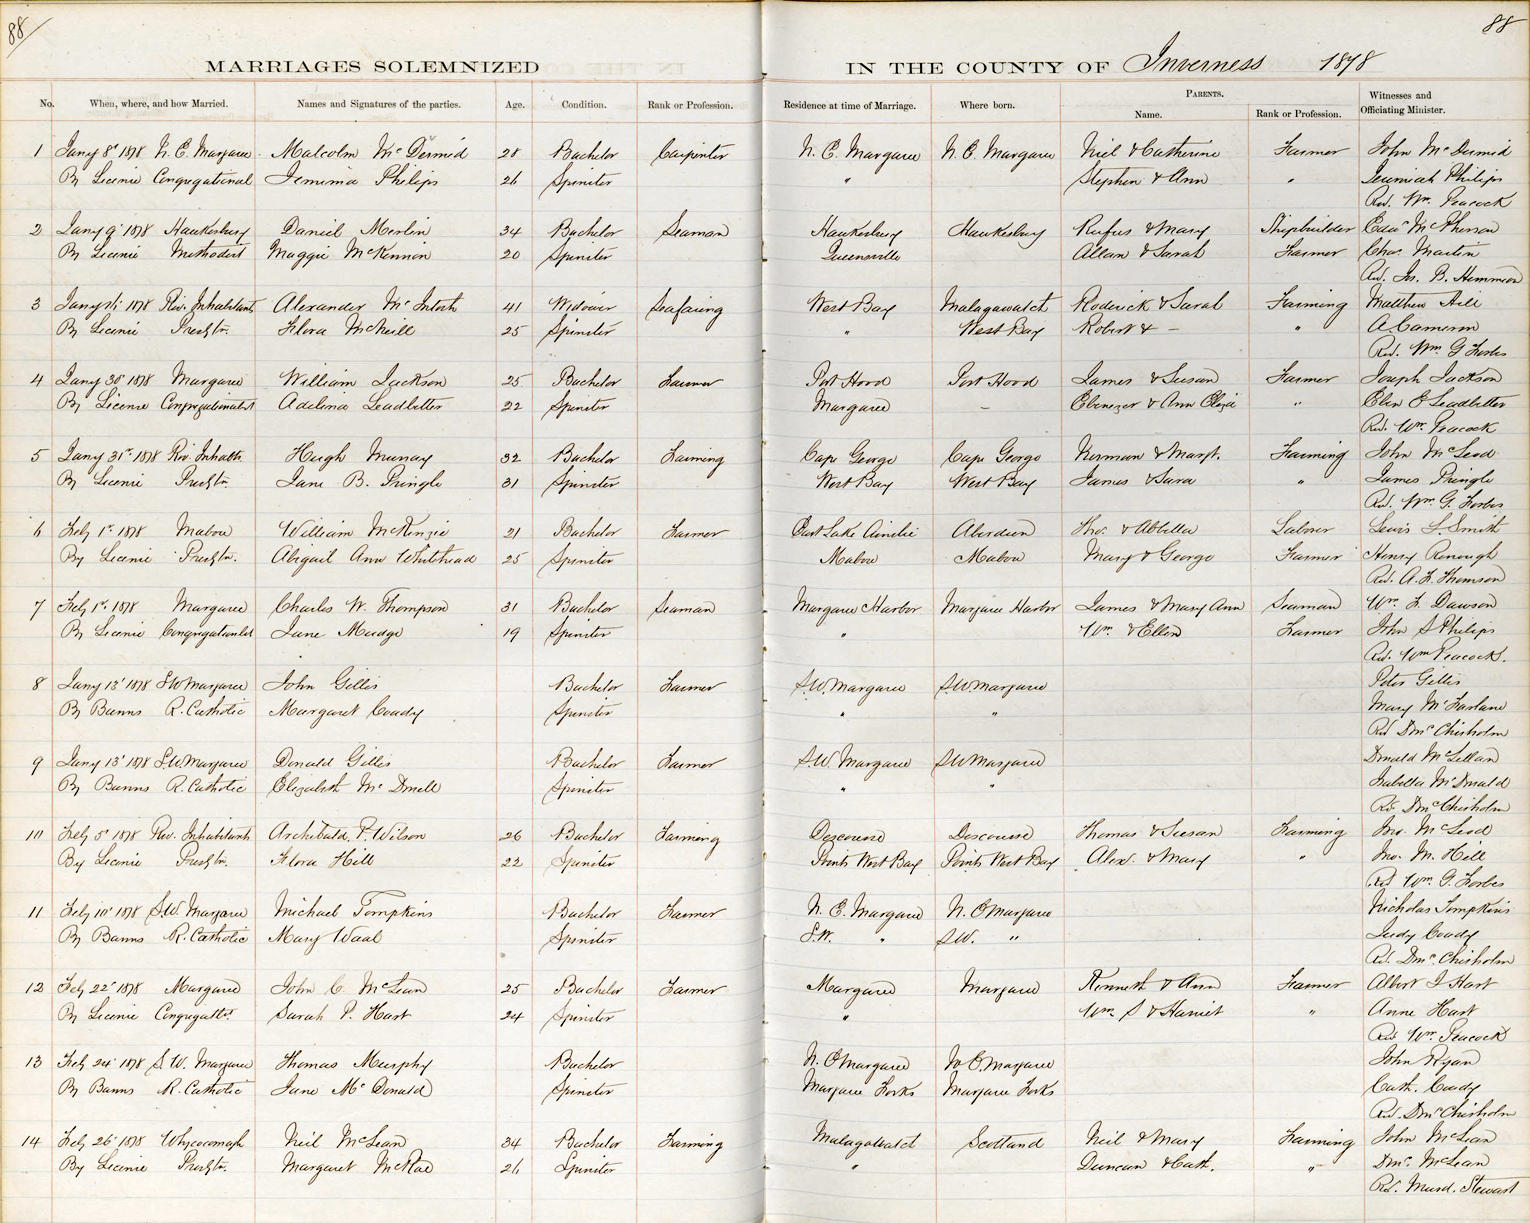 88
88
MARRIAGES SOLEMNIZED IN THE COUNTY OF Inverness 1878
No. When, where, and how Married. Names and Signatures of the parties. Age. Condition. Rank or Profession. Residence at time of Marriage. Where born. PARENTS. Name. Rank or Profession. Witnesses and Officiating Minister.
1 Jany 8t 1878 N. E. Margaree Malcolm McDermid 28 Bachelor Carpenter N. E. Margaree N. E. Margaree Neil & Catherine Farmer John McDermid
By Licence Congregational Jemima Philips 26 Spinster " Stephen & Ann " Jeremiah Philips
Rev. Wm. Peacock
2 Jany 9t 1878 Hawkesbury Daniel Merlin 34 Bachelor Seaman Hawkesbury Hawkesbury Rufus & Mary Shipbuilder McPherson
By Licence Methodist Maggie McKinnon 20 Spinster Queensville Allan & Sarah Farmer Chas. Martin
Rev. Jos. B. Hemmeon
3 Jany 1878 Riv. Inhabitants Alexander McIntosh 41 Widower Seafaring West Bay Malagawatch Roderick & Sarah Farming Matthew Hill
By Licence Presbtn. Flora McNeill 25 Spinster " West Bay Robert & — " A. Cameron
Rev. Wm. G Forbes
4 Jany 30t 1878 Margaree William Jackson 25 Bachelor Farmer Port Hood Port Hood James & Susan Farmer Joseph Jackson
By License Congregationalist Adelina Leadbetter 22 Spinster Margaree — Ebenezer & Ann Eliza " Eben E Leadbetter
Rev. Wm. Peacock
5 Jany 31st 1878 Riv. Inhabts Hugh Murray 32 Bachelor Farming Cape George Cape George Norman & Margt. Farming John McLeod
By Licence Presbtn. Jane B. Pringle 31 Spinster West Bay West Bay James & Sara " James Pringle
Rev. Wm. G. Forbes
6 Feby 1st 1878 Mabou William McKenzie 21 Bachelor Farmer East Lake Ainslie Aberdeen Thos. & Abbella Labour Lewis L. Smith
By Licence Presbtn. Abigail Ann Whitehead 25 Spinster Mabou Mabou Mary & George Farmer Henry
Rev. A. F. Thomson
7 Feby 1st 1878 Margaree Charles W. Thompson 31 Bachelor Seaman Margaree Harbor Margaree Harbor James & Mary Ann Seaman Wm. F. Dawson
By Licence Congregationalist Jane Mudge 19 Spinster " Wm & Ellen Farmer John S Philips
Rev. Wm Peacock.
8 Jany 13t 1878 S W Margaree John Gillis Bachelor Farmer S. W. Margaree S. W Margaree Peter Gillis
By Banns R. Catholic Margaret Coady Spinster " " Mary McFarlane
Rev Dnc Chisholm
9 Jany 13t 1878 S. W. Margaree Donald Gillis Bachelor Farmer S. W. Margaree S W Margaree Donald McLellan
By Banns R. Catholic Elizabeth McDonell Spinster " " Isabella McDonald
Rev. Dnc Chisholm
10 Feby 5t 1878 Riv. Inhabitants Archibald P. Wilson 26 Bachelor Farming Descousse Descousse Thomas & Susan Farming Jno. McLeod
By Licence Presbtn. Flora Hill 22 Spinster Points West Bay Points West Bay Alexr. & Mary " Jno. M. Hill
Rev Wm. G. Forbes
11 Feby 10t 1878 S. W. Margaree Michael Tompkins Bachelor Farmer N. E. Margaree N. E Margaree Nicholas Tompkins
By Banns R. Catholic Mary Waal Spinster S. W. " S. W. " Judy Coady
Rev. Dnc. Chisholm
12 Feby 22d 1878 Margaree John C. McLean 25 Bachelor Farmer Margaree Margaree Kenneth & Ann Farmer Albert I Hart
By Licence Congregatlst. Sarah P. Hart 24 Spinster " Wm. S & Harriet " Anne Hart
Rev Wm. Peacock
13 Feby 24t 1878 S. W. Margaree Thomas Murphy Bachelor N. E Margaree N E. Margaree John Ryan
By Banns R. Catholic Jane McDonald Spinster Margaree Forks Margaree Forks Cath. Coady
Rev. Dnc Chisholm
14 Feby 26t 1878 Whycocomagh Neil McLean 34 Bachelor Farming Malagawatch Scotland Neil & Mary Farming John McLean
By Licence Presbtn. Margaret McRae 26 Spinster " Duncan & Cath. " Dnc. McLean
Rev. Murd. Stewart